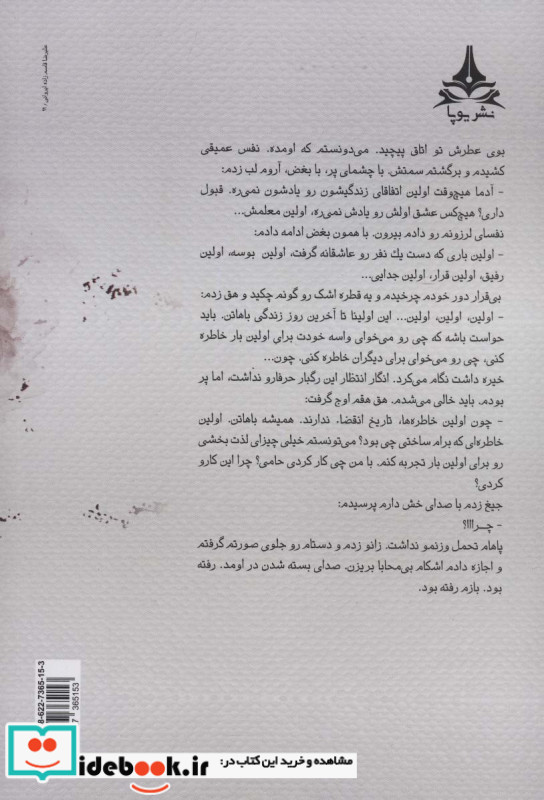 نشر یوپا
بوی عطرش تو اتاق پیچید. می‌دونستم که اومده. نفس عمیقی
کشیدم و برگشتم سمتش. با چشمای پر، با بغض، آروم لب زدم:
- آدما هیچ‌وقت اولین اتفاقای زندگیشون رو یادشون نمی‌ره. قبول
داری؟ هیچ‌کس عشق اولش رو یادش نمی‌ره، اولین معلمش...
نفسای لرزونم رو دادم بیرون. با همون بغض ادامه دادم:
- اولین باری که دست یك نفر رو عاشقانه گرفت، اولین بوسه، اولین
رفیق، اولین قرار، اولین جدایی...
بی‌قرار دور خودم چرخیدم و یه قطره اشک رو گونم چکید و هق زدم:
- اولین، اولین، اولین... این اولینا تا آخرین روز زندگی باهاتن. باید
حواست باشه که چی رو می‌خوای واسه خودت برای اولین بار خاطره
کنی، چی رو می‌خوای برای دیگران خاطره کنی، چون...
خیره داشت نگام می‌کرد. انگار انتظار این رگبار حرفارو نداشت، اما پر
بودم. باید خالی می‌شدم. هق هقم اوج گرفت:
- چون اولین خاطره‌ها، تاریخ انقضاء ندارند. همیشه باهاتن. اولین
خاطره‌ای که برام ساختی چی بود؟ می‌تونستم خیلی چیزای لذت بخشی
رو برای اولین بار تجربه کنم. با من چی کار کردی حامی؟ چرا این کارو
کردی؟
جیغ زدم با صدای خش دارم پرسیدم:
- چــرااا؟
پاهام تحمل وزنمو نداشت. زانو زدم و دستام رو جلوی صورتم گرفتم
و اجازه دادم اشکام بی‌محابا بریزن. صدای بسته شدن در اومد. رفته
بود. بازم رفته بود.
8-622-7365-15-3
7 365153
مشاهده و خرید این کتاب در:
idebook.ir